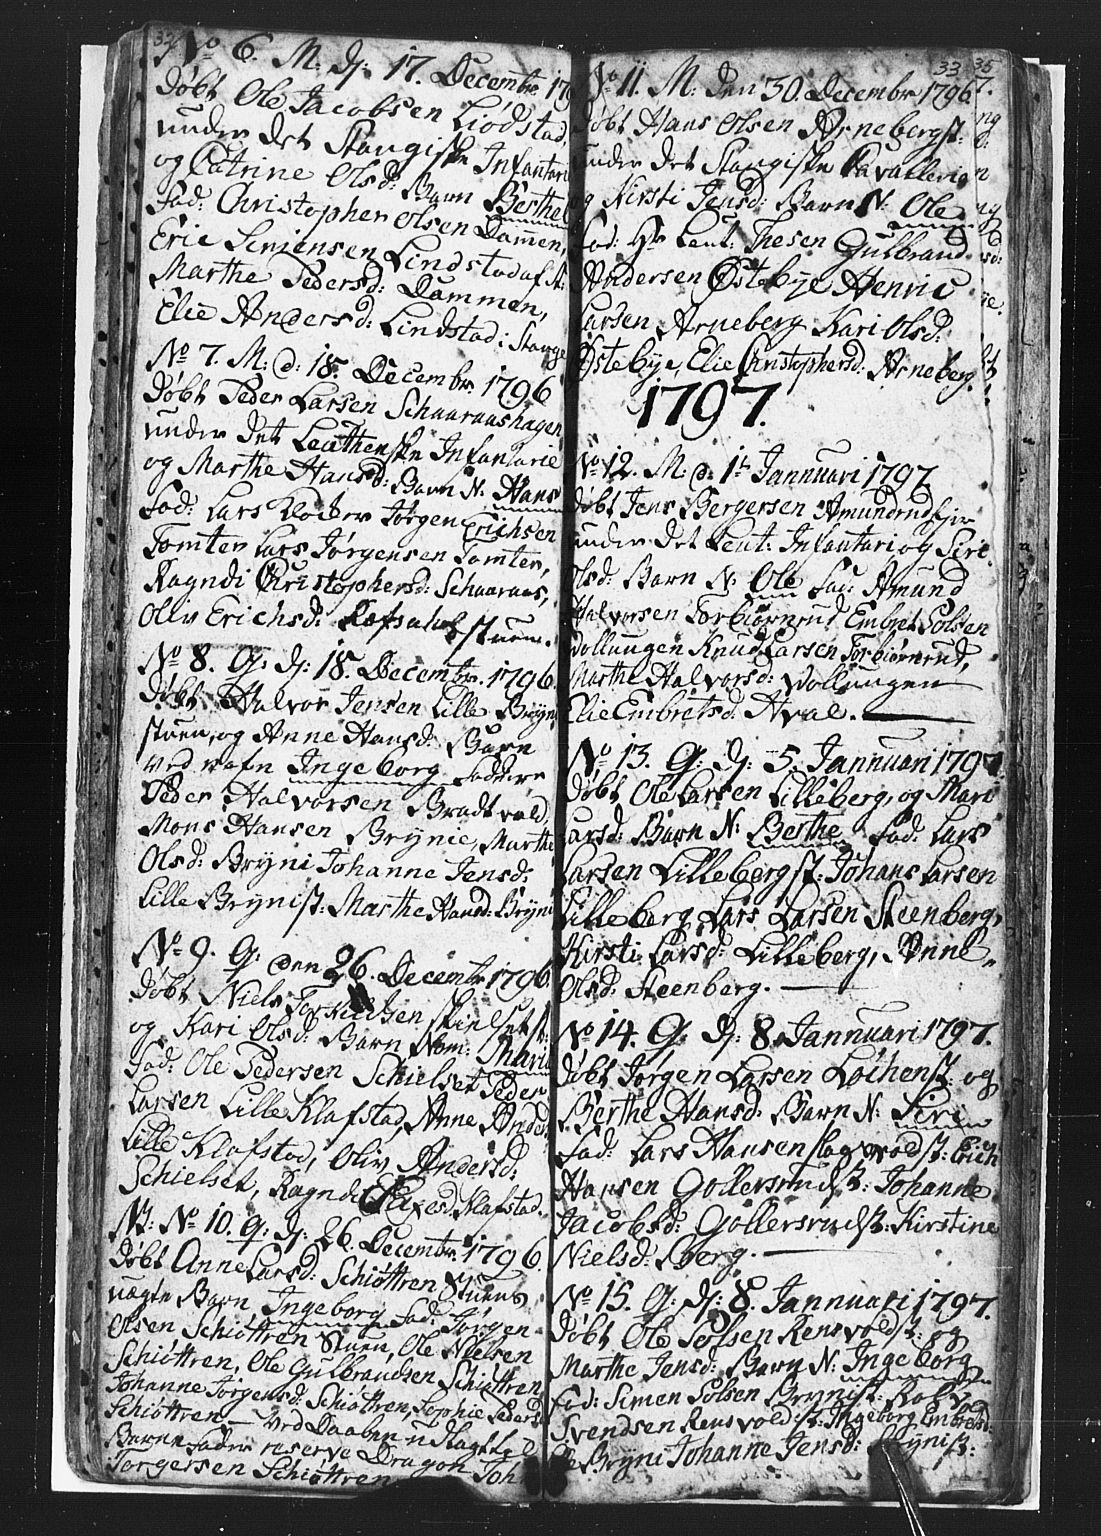 32
No 6. M. d: 17. Decembr. 17
Døbt Ole Jacobsen Liødstad,
under det Stangiske Infantari
og Catrine Olsd: Barn Berthel
Fad: Christopher Olsen Dammen,
Eric Lindstad af St:
Marthe Pedersd: Dammen,
Elie Andersd: Lindstad i Stange
No 7. M: d: 18. Decembr. 1796
Døbt Peder Larsen Schaaraashagen
under det Leuthenske Infantarie
og Marthe Hansd: Barn N: Hans
Fad: Lars Klocker Jørgen Erichsen
Tomter Lars Jørgensen Tomter,
Ragndi Christophersd: Schaaraas,
Oliv Erichsd: Refsahlstuen.
No 8. G: d: 18. Decembr. 1796.
Døbt Halvor Jensen Lille Bryni
stuen, og Anne Hansd: Barn
ved nafn Ingeborg Faddere
Peder Halvorsen Bradtvold,
Mons Hansen Brynie, Marthe
Olsd: Bryni Johanne Jensd:
Lille Brynist: Marthe Hansd: Bryni
No 9. G. den 26. Decembr 1796.
Døbt Niels Torkildsen Skielset st:
og Kari Olsd: Barn Nom: Mari
Fad: Ole Pedersen Schielset Peder
Larsen Lille Klafstad, Anne Anders
Lille Klafstad, Oliv Andersd:
Schielset, Ragndi Klafstad.
NB: No 10. G: d: 26. Decembr. 1796.
Døbt Anne Larsd: Schiøttren Stuens
uægte Barn Ingeborg Fad: Jørgen
Olsen Schiøttren Stuen, Ole Nielsen
Schiøttren, Ole Gulbrandsen Schiøttren
Johanne Jørgensd: Schiøttren, Sophie Peders
Schiøttren — ved Daaben udlagt til
Barne Fader reserve Dragon Joh
Jørgersen Schiøttren
33 35
No 11. M: den 30. Decembr 1796.
Døbt Hans Olsen Arneberg st:
under det Stangiske Cavallerie
og Kirsti Jensd: Barn N: Ole
Fad: Hr Leut: Thesen Gulbrand
Andersen Østebye Henric
Larsen Arneberg Kari Olsd:
Østebye, Elie Christophersd: Arneberg.
1797.
No 12. M: d: 1t Jannuari 1797
Døbt Jens Bergersen Amundrud
under det Leut: Infantari og Siri
Olsd: Barn N: Ole Fad: Amund
Halvorsen Torbiørnrud Embret Colsen
Wollungen Knud Larsen Torbiørnrud,
Marthe Halvorsd: Wollungen
Elie Embretsd: Hval.
No 13. G: d: 5. Jannuari 1797.
Døbt Ole Larsen Lilleberg, og Mari
Larsd: Barn N: Berthe Fad: Lars
Larsen Lilleberg st: Johans Larsen
Lilleberg, Lars Larsen Steenberg,
Kirsti Larsd: Lilleberg, Anne
Olsd: Steenberg.
No 14. G. d: 8. Jannuari 1797.
Døbt Jørgen Larsen Løthenst: og
Berthe Hansd: Barn N: Siri
Fad: Lars Hansen Slagsvold st: Erich
Hansen Gollersrud st: Johanne
Jacobsd: Gollersrud st: Kirstine
Nielsd: Berg.
No 15. G: d: 8. Jannuari 1797.
Døbt Ole Colsen Rensvold st: og
Marthe Jensd: Barn N: Ingeborg
Fad: Simen Colsen Brynist: Kolb
Svendsen Rensvold st: Ingeborg Embretsd:
Bryni Johanne Jensd: Brynist: